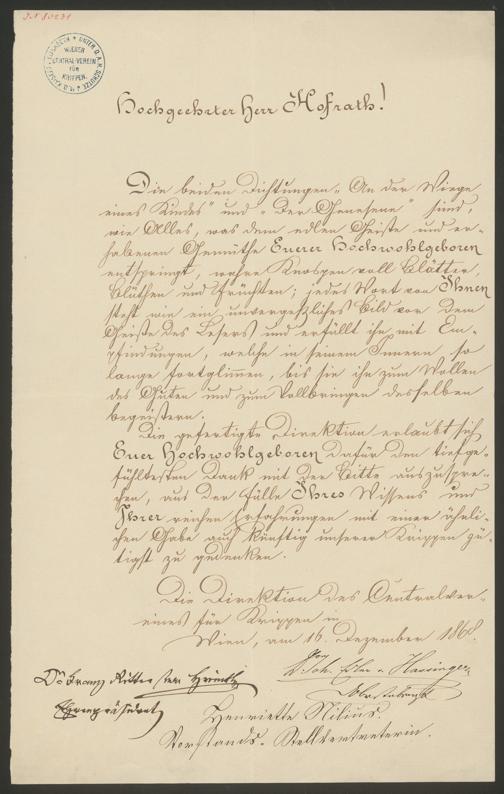 J.N. 80231
WIENER
CENTRAL-VEREIN
FÜR
KRIPPEN
Hochgeehrter Herr Hofrath!
Die beiden Dichtungen „An der Wiege
eines Kindes" und „Der Genesene" sind,
wie Alles, was dem edlen Geiste und er-
habenen Gemüthe Euerer Hochwohlgeboren
entspringt, wahre Knospen voll Blätter,
Blüthen und Früchten; jedes Wort von Ihnen
steht wie ein unvergeßliches Bild vor dem
Geiste des Lesers und erfüllt ihn mit Em-
pfindungen, welche in seinem Innern so
lange fortglimmen, bis sie ihn zum Wollen
des Guten und zum Vollbringen desselben
begeistern.
Die gefertigte Direktion erlaubt sich
Euer Hochwohlgeboren dafür den tiefge-
fühltesten Dank mit der Bitte auszuspre-
chen, aus der Fülle Ihres Wissens und
Ihrer reichen Erfahrungen mit einer ähnli-
chen Gabe auch künftig unserer Krippen gü-
tigst zu gedenken.
Die Direktion des Centralver-
eines für Krippen in
Wien, am 16. Dezember 1868.
Dr Franz Ritter
Ehrenpräsident
Henriette Nilius.
Vorstands-Stellvertreterin.